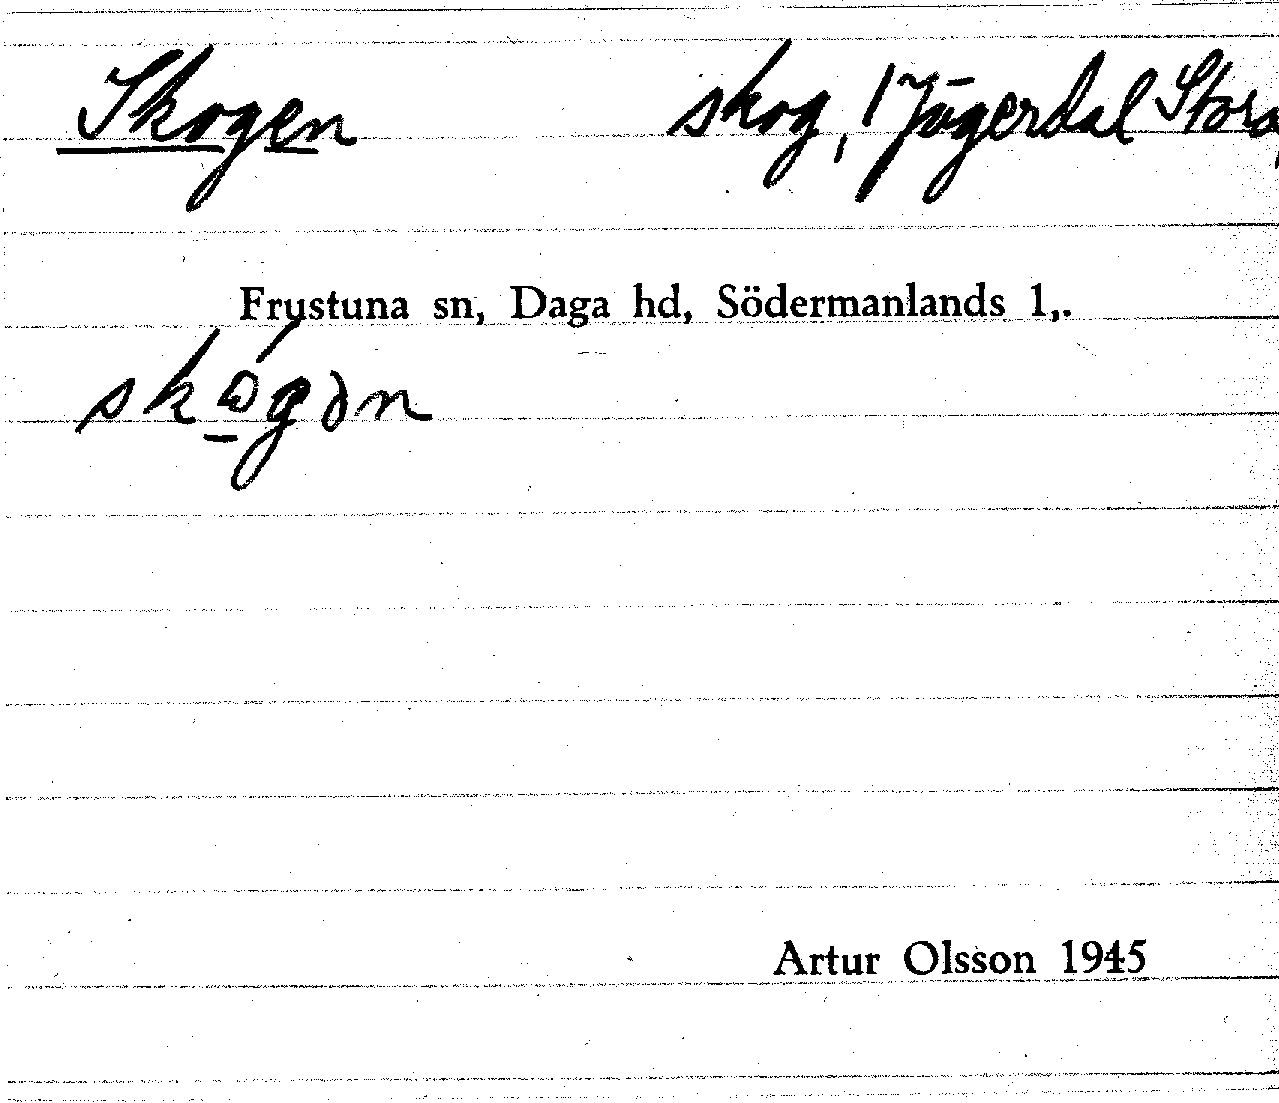 Skogen skog, 1 Jägerdal Stora,
Frustuna sn, Daga hd, Södermanlands l,.
Artur Olsson 1945